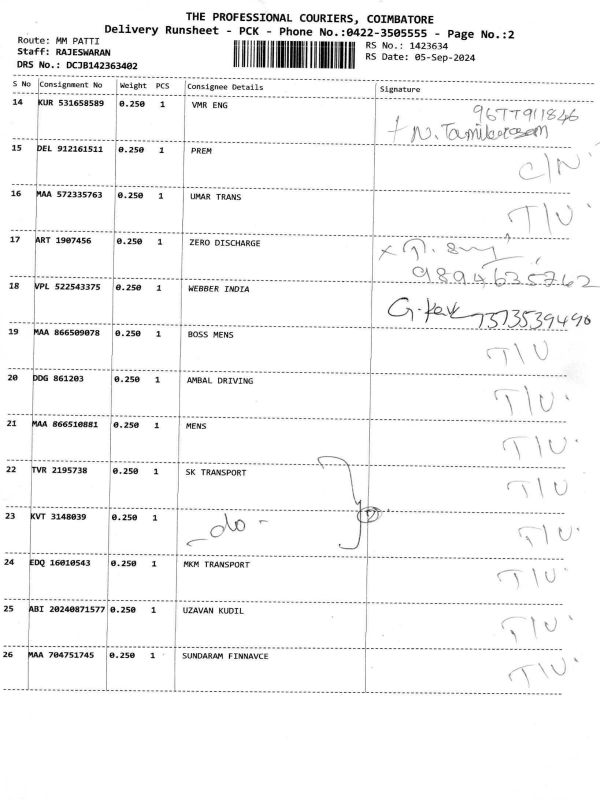 THE PROFESSIONAL COURIERS, COIMBATORE
Delivery Runsheet - PCK - Phone No.:0422-3505555 - Page No.:2
Route: MM PATTI
RS No.: 1423634
Staff: RAJESWARAN
RS Date: 05-Sep-2024
DRS No.: DCJB142363402
S No Consignment No Weight PCS Consignee Details Signature
14 KUR 531658589 0.250 1 VMR ENG 9677911846
N. Tamilarasan
15 DEL 912161511 0.250 1 PREM C/N
16 MAA 572335763 0.250 1 UMAR TRANS T/U
17 ART 1907456 0.250 1 ZERO DISCHARGE
9894635762
18 VPL 522543375 0.250 1 WEBBER INDIA 7373539490
19 MAA 866509078 0.250 1 BOSS MENS T/U
20 DDG 861203 0.250 1 AMBAL DRIVING T/U
21 MAA 866510881 0.250 1 MENS T/U
22 TVR 2195738 0.250 1 SK TRANSPORT T/U
23 KVT 3148039 0.250 1 -do- T/U
24 EDQ 16010543 0.250 1 MKM TRANSPORT T/U
25 ABI 20240871577 0.250 1 UZAVAN KUDIL T/U
26 MAA 704751745 0.250 1 SUNDARAM FINNAVCE T/U